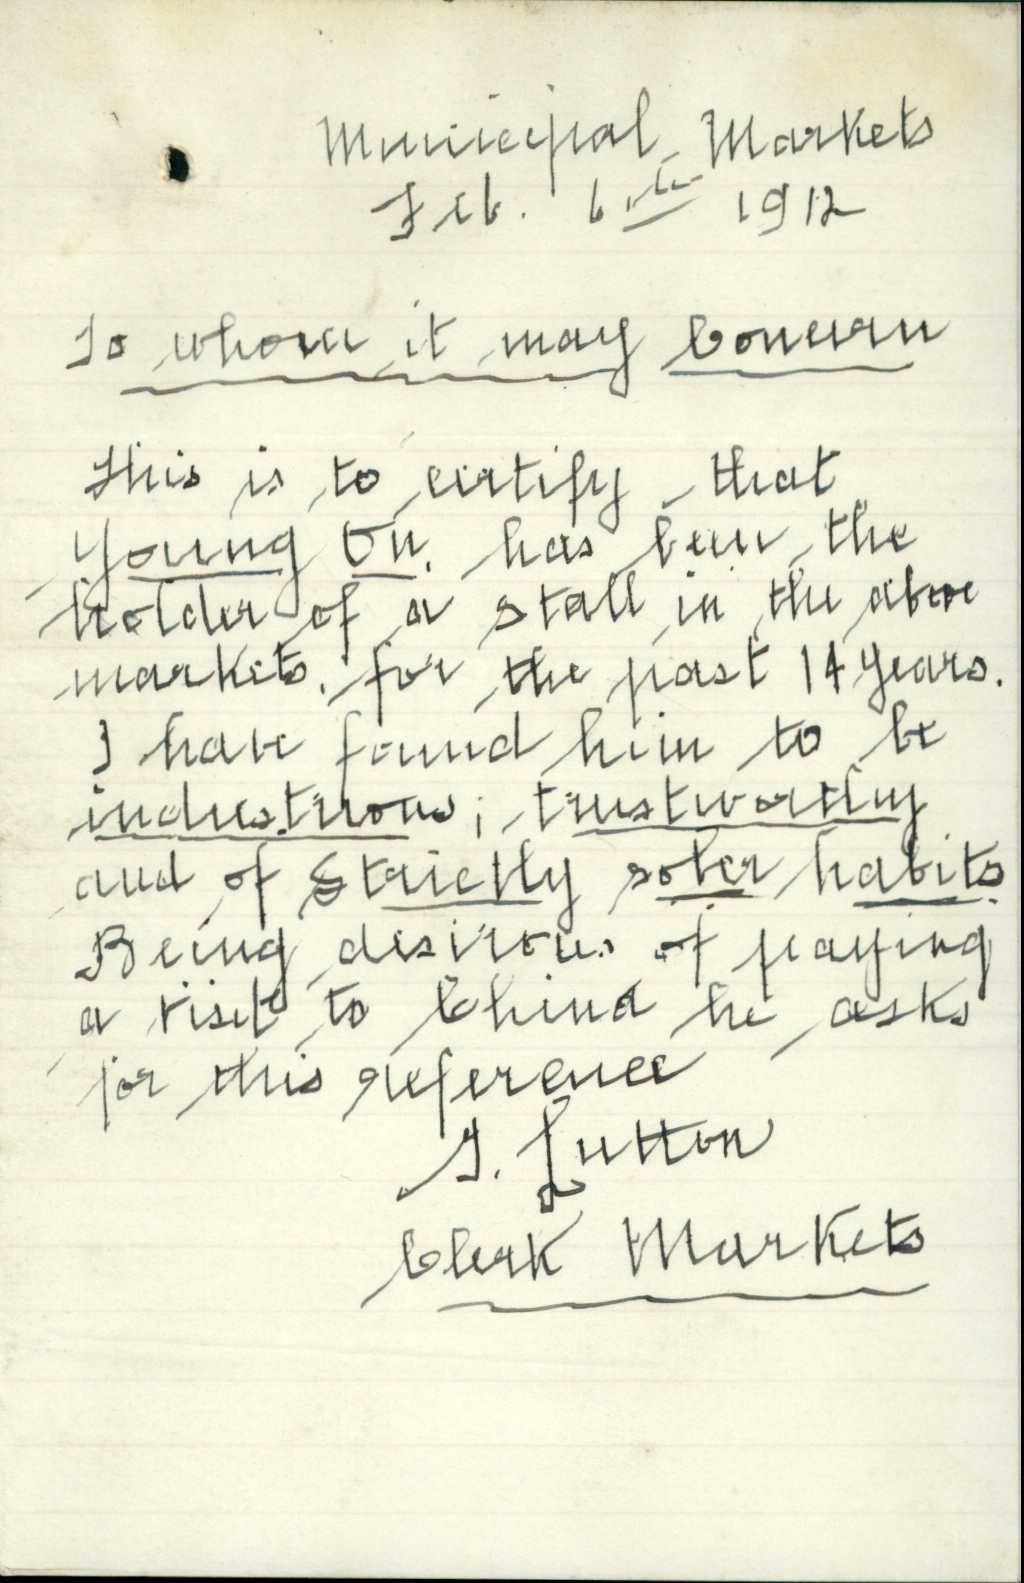 Municipal Markets
Feb. 6th 1912
To whom it may Concern
This is to certify that
Young On. has been the
holder of a stall in the above
markets. for the past 14 years.
I have found him to be
industruous; trustworthy
and of Strictly sober habits.
Being desirous of paying
a visit to China he asks
for this reference
Sutton
Clerk Markets